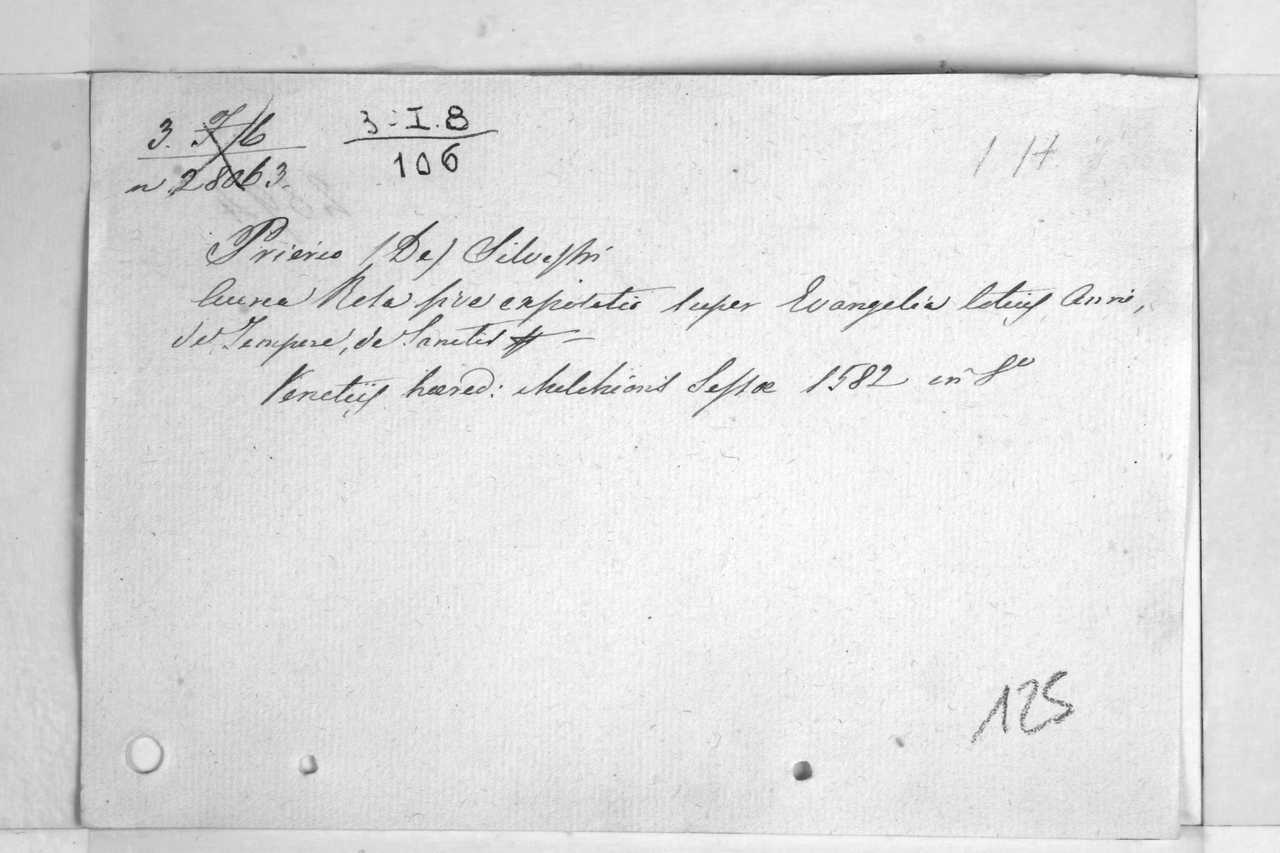 3. I. 8
106
n 28063.
Prierio (De) Silvestri
Aurea Rosa sive expositio super Evangelia totius Anni,
de Tempore, de Sanctis
Venetiis hæred: Melchioris Sessæ 1582 in 8º
125